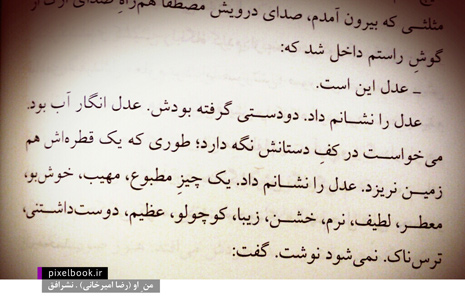 مثلثی که بیرون آمدم، صدای درویش مصطفا هم‌راهِ صدای
گوشِ راستم داخل شد که:
ـ عدل این است.
عدل را نشانم داد. دودستی گرفته بودش. عدل انگار آب بود.
می‌خواست در کفِ دستانش نگه دارد؛ طوری که یک قطره‌اش هم
زمین نریزد. عدل را نشانم داد. یک چیزِ مطبوع، مهیب، خوش‌بو،
معطر، لطیف، نرم، خشن، زیبا، کوچولو، عظیم، دوست‌داشتنی،
ترس‌ناک. نمی‌شود نوشت. گفت:
pixelbook.ir
من او (رضا امیرخانی) . نشرافق